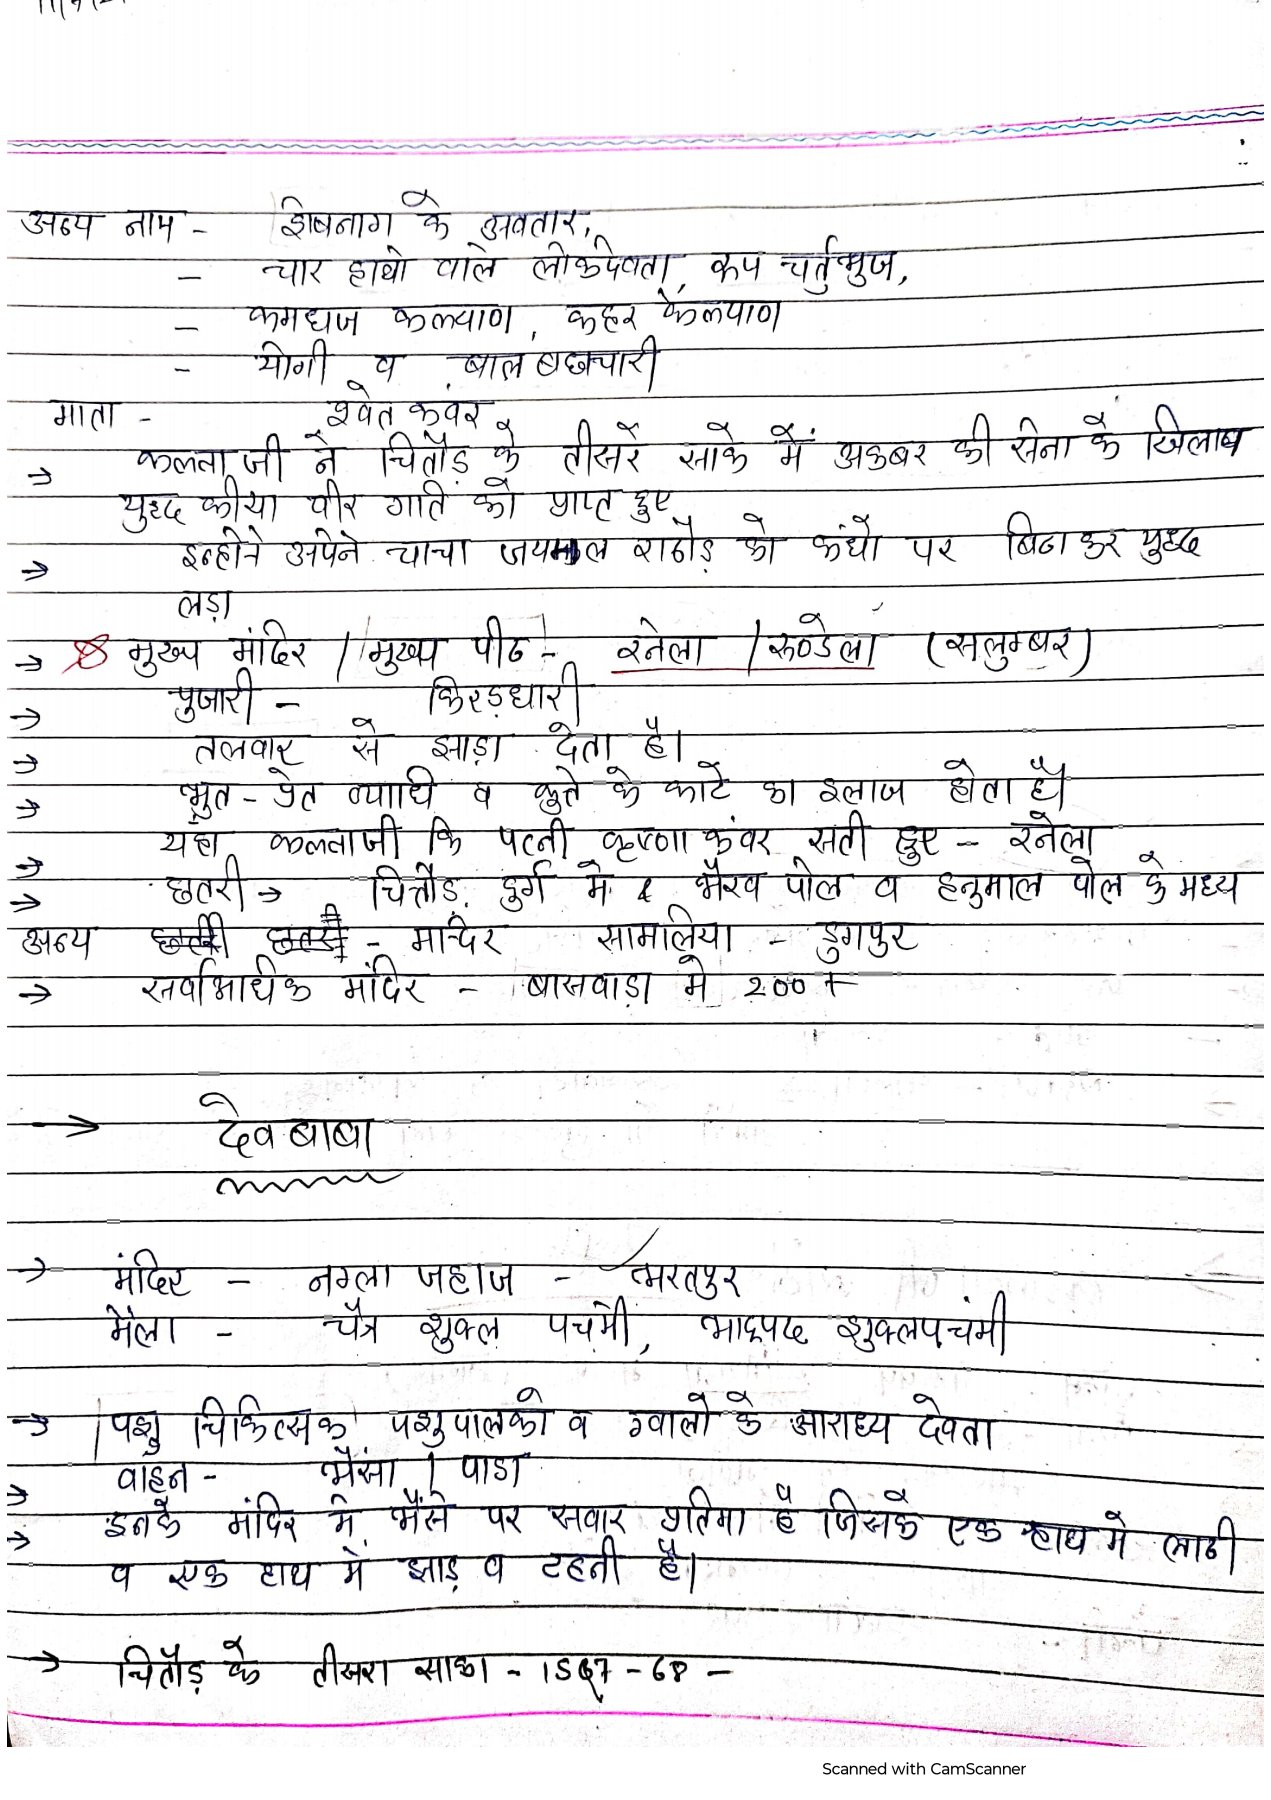 अन्य नाम - शेषनाग के अवतार,
- चार हाथो वाले लोकदेवता, रूप चर्तुभुज,
- कमधज कल्याण, केहर कल्याण
- योगी व बाल ब्रह्मचारी
माता - श्वेत कवंर
→ कल्लाजी ने चितौड़ के तीसरे साके में अकबर की सेना के खिलाब
युद्ध कीया वीर गति को प्राप्त हुए
→ इन्होने अपने चाचा जयमल राठौड़ को कंधो पर बिठाकर युध्द
लड़ा
→ मुख्य मंदिर / मुख्य पीठ - रनेला / रुण्डेला (सलुम्बर)
→ पुजारी - किरड़धारी
→ तलवार से झाड़ा देता है।
→ भुत - प्रेत व्याधि व कुते के काटे का इलाज होता है।
→ यहा कल्लाजी कि पत्नी कृष्णा कंवर सती हुए - रनेला
→ छतरी → चित्तौड़ दुर्ग मे भैरव पोल व हनुमाल पोल के मध्य
अन्य - मन्दिर सामलिया - डुगपुर
→ सर्वाधिक मंदिर - बासवाड़ा मे 200 +
→ देव बाबा
→ मंदिर - नग्ला जहाज - भरतपुर
मेला - चैत्र शुक्ल पचंमी, भाद्रपद शुक्लपचंमी
→ पशु चिकित्सक पशुपालको व ग्वालो के आराध्य देवता
→ वाहन - भैंसा / पाडा
→ इनके मंदिर मे भैंसे पर सवार प्रतिमा है जिसके एक हाथ मे लाठी
व एक हाथ में झाड़ व टहनी है।
→ चितौड़ के तीसरा साका - 1567 - 68 -
Scanned with CamScanner